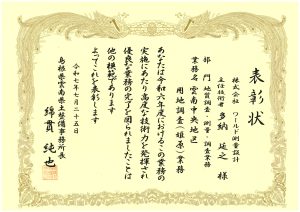 表彰状
株式会社 ワールド測量設計
主任技術者 多納 延之 様
部門 地質調査・測量・調査業務
業務名 雲南中央地区
用地調査(雄原)業務
あなたは令和六年度におけるこの業務の
実施にあたり高度な技術力を発揮され
優良な業務の完了を図られましたことは
他の模範であります
よってこれを表彰します
令和七年七月二十五日
島根県雲南県土整備事務所長
綿貫 純也